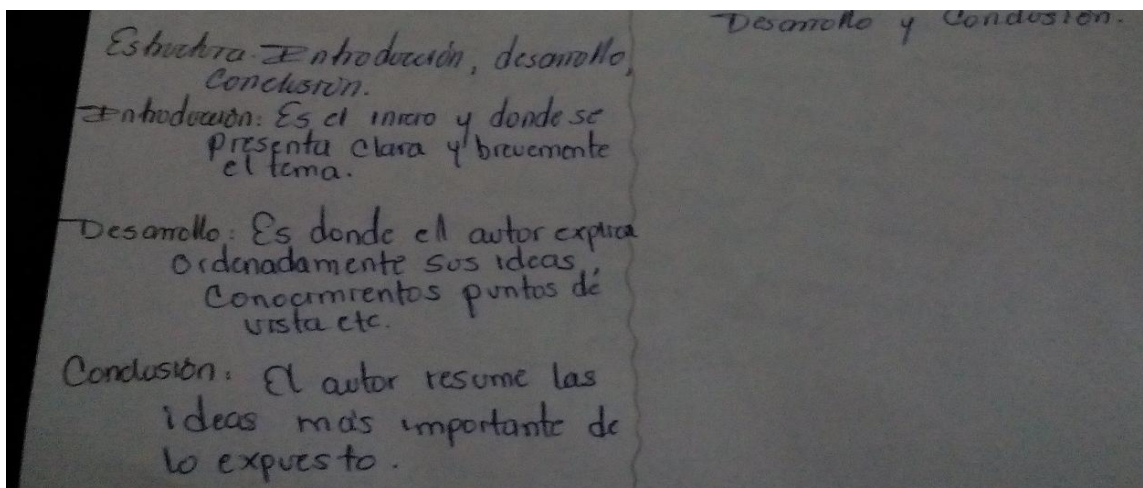 Estructura. Introducción, desarrollo,
conclusión.
Introducción: Es el inicio y donde se
presenta clara y brevemente
el tema.
Desarrollo: Es donde ell autor explica
ordenadamente sus ideas,
conocimientos puntos de
vista etc.
Conclusión: El autor resume las
ideas más importante de
lo expuesto.
Desarrollo y Conclusión.